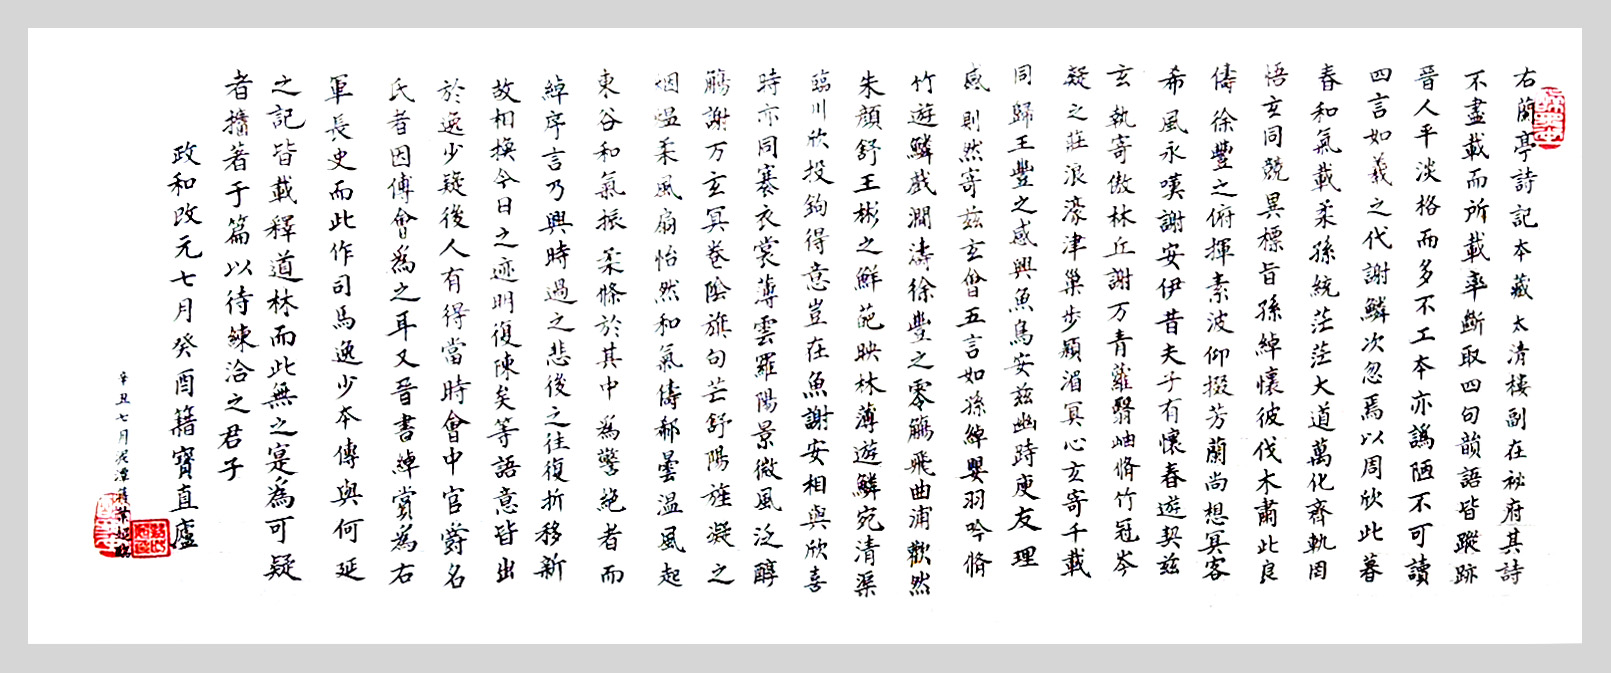 右蘭亭詩記本藏太清樓副在祕府其詩
不盡載而所載率斷取四句韻語皆蹤跡
晉人平淡格而多不工本亦譌陋不可讀
四言如羲之代謝鱗次忽焉以周欣此暮
春和氣載柔孫統茫茫大道萬化齊軌罔
悟玄同競異標旨孫綽懷彼伐木肅此良
儔徐豐之俯揮素波仰掇芳蘭尚想冥客
希風永嘆謝安伊昔夫子有懷春遊契茲
玄執寄傲林丘謝万青蘿翳岫脩竹冠岑
凝之莊浪濠津巢步潁湄冥心玄寄千載
同歸王豐之感興魚鳥安茲幽跱庾友理
感則然寄茲玄會五言如孫綽嬰羽吟脩
竹遊鱗戲澗濤徐豐之零觴飛曲浦歡然
朱顏舒王彬之鮮葩映林薄遊鱗宛清渠
臨川欣投鉤得意豈在魚謝安相與欣喜
時亦同褰衣裳薄雲羅陽景微風泛醇
觴謝万玄冥卷陰旂句芒舒陽旌凝之
烟熅柔風扇怡然和氣儔郗曇温風起
東谷和氣振柔條於其中為警絕者而
綽序言乃興時過之悲後之往復折移新
故相換今日之迹明復陳矣等語意皆出
於逸少疑後人有得當時會中官爵名
氏者因傅會為之耳又晉書綽賞為右
軍長史而此作司馬逸少本傳與何延
之記皆載釋道林而此無之寔為可疑
者攟著于篇以待練洽之君子
政和改元七月癸酉籍寶直廬
辛丑七月